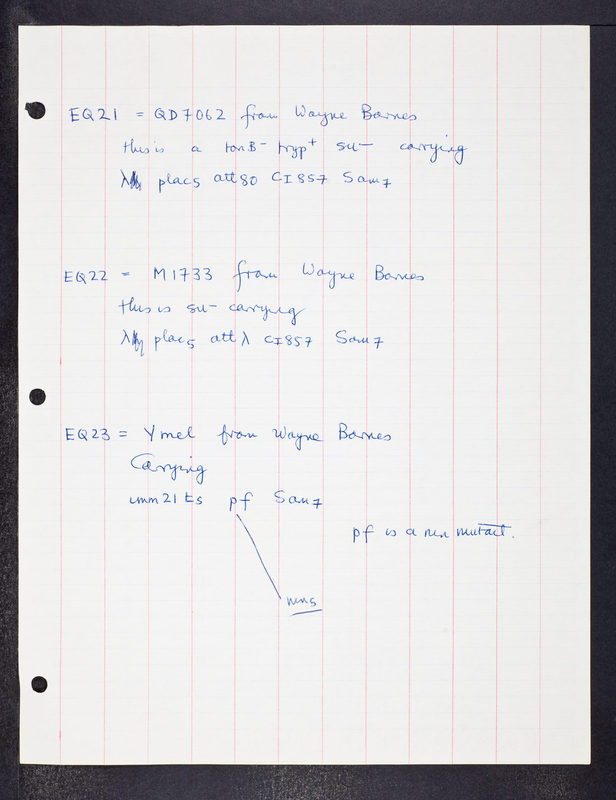 EQ21 = QD7062 from Wayne Barnes
this is a tonB⁻ tryp⁺ su⁻ carrying
λ plac5 att80 CI857 Sam7
EQ22 = M1733 from Wayne Barnes
this is su⁻ carrying
λ plac5 att λ CI857 Sam7
EQ23 = Ymel from Wayne Barnes
Carrying
imm21 ts pf Sam7
pf is a nin mutant.
nin5